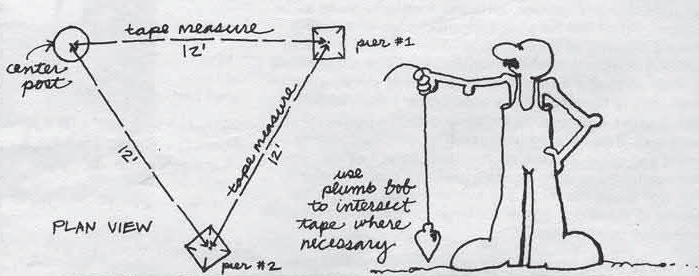 tape measure
12'
pier #1
center
post
tape measure
12'
12'
use
plumb bob
to intersect
tape where
necessary
PLAN VIEW
pier #2